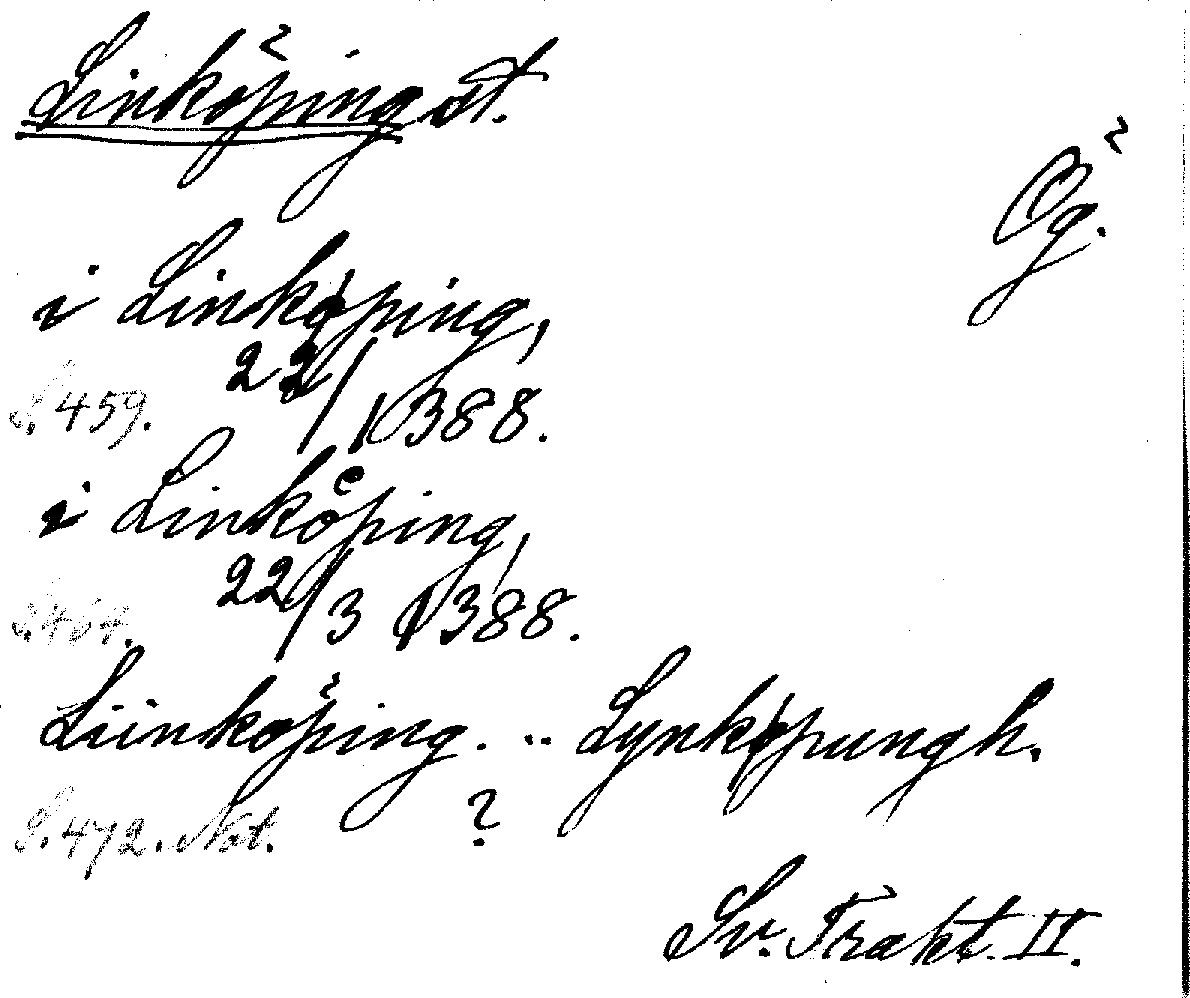 Linköping st.
Ög.
i Linkøping,
S. 459. 22/1 1388.
i Linko&#x364;ping,
22/3 1388.
S. 464.
Liinköping. .. Lynkøpungh.
S. 472. Not. ?
Sv. Trakt. II.